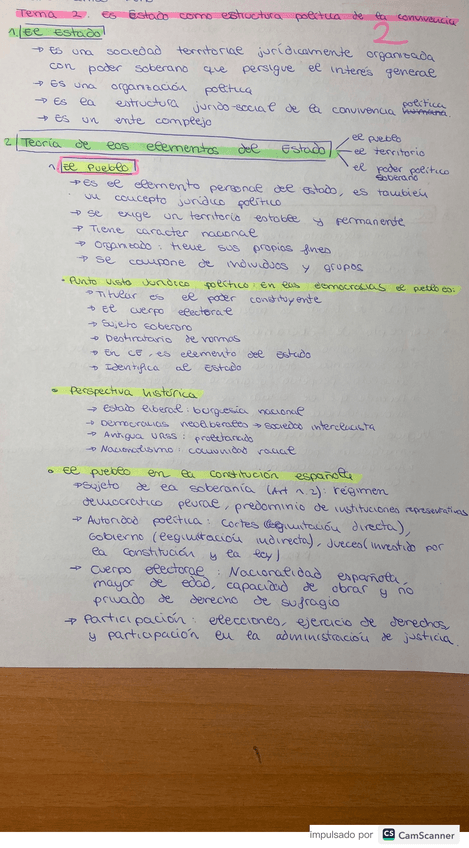 Tema 2. es Estado como estructura política de la convivencia
2
1. el estado
→ Es una sociedad territorial jurídicamente organizada
con poder soberano que persigue el interés general
→ Es una organización política
→ Es la estructura jurido-social de la convivencia política humana.
→ Es un ente complejo
2. Teoría de los elementos del Estado
el pueblo
el territorio
el poder político
soberano
1. el pueblo
→ Es el elemento personal del Estado, es también
un concepto jurídico político
→ Se exige un territorio estable y permanente
→ Tiene caracter nacional
→ Organizado: tiene sus propios fines
→ Se compone de individuos y grupos
• Punto vista jurídico político en las democracias el pueblo es:
→ Titular es el poder constituyente
→ El cuerpo electoral
→ Sujeto soberano
→ Destinatario de normas
→ En CE, es elemento del Estado
→ Identifica al Estado
• Perspectiva histórica
→ Estado liberal: burguesía nacional
→ Democracias neoliberales → sociedad interclasista
→ Antigua URSS: proletariado
→ Nacionalismo: comunidad racial
• El pueblo en la constitución española
→ Sujeto de la soberanía (Art n. 2): régimen
democrático plural, predominio de instituciones representativas
→ Autoridad política: cortes (legimitación directa),
Gobierno (legimitación indirecta), Jueces (investido por
la constitución y la ley)
→ Cuerpo electoral: Nacionalidad española,
mayor de edad, capacidad de obrar y no
privado de derecho de sufragio
→ Participación: elecciones, ejercicio de derechos
y participación en la administración de justicia.
impulsado por CS CamScanner